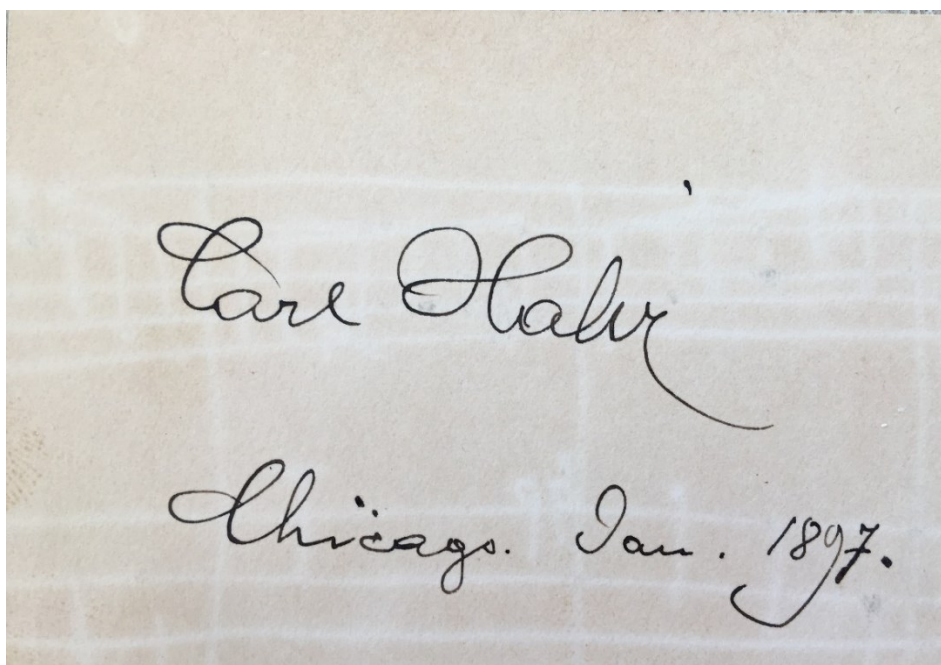 Carl Halir
Chicago. Jan. 1897.